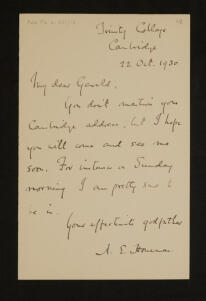 Trinity College
Cambridge
22 Oct. 1930
My dear Gerald,
You don't mention your
Cambridge address, but I hope
you will come and see me
soon. For instance on Sunday
morning I am pretty sure to
be in.
Your affectionate godfather
A. E. Housman